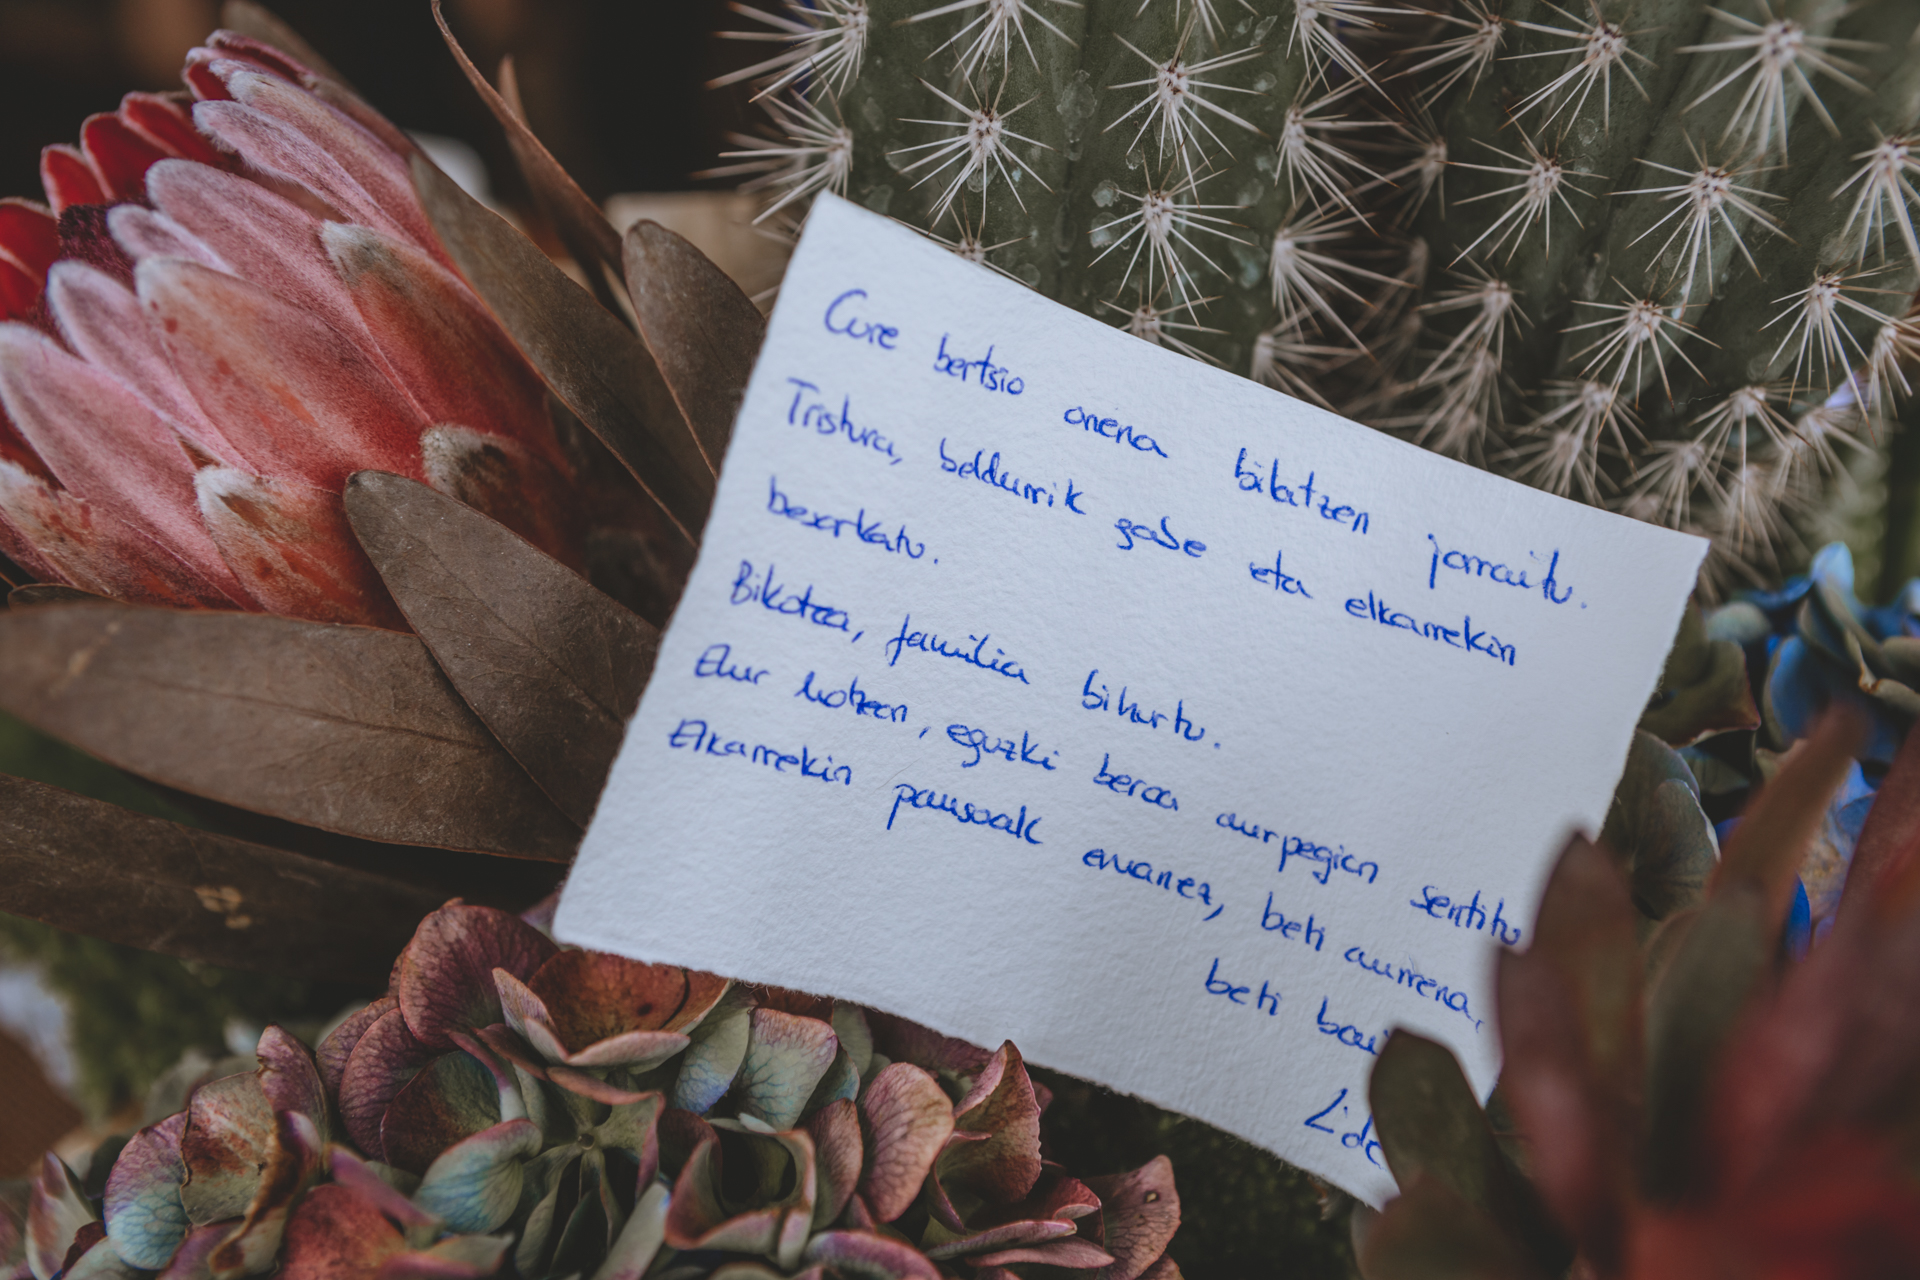 Gure bertsio onena bilatzen jarraitu.
Tristura, beldurrik gabe eta elkarrekin
besarkatu.
Bikotea, familia bihurtu.
Elur hotzean, eguzki beroa aurpegian sentitu
Elkarrekin pausoak emanez, beti aurrera,
beti bai